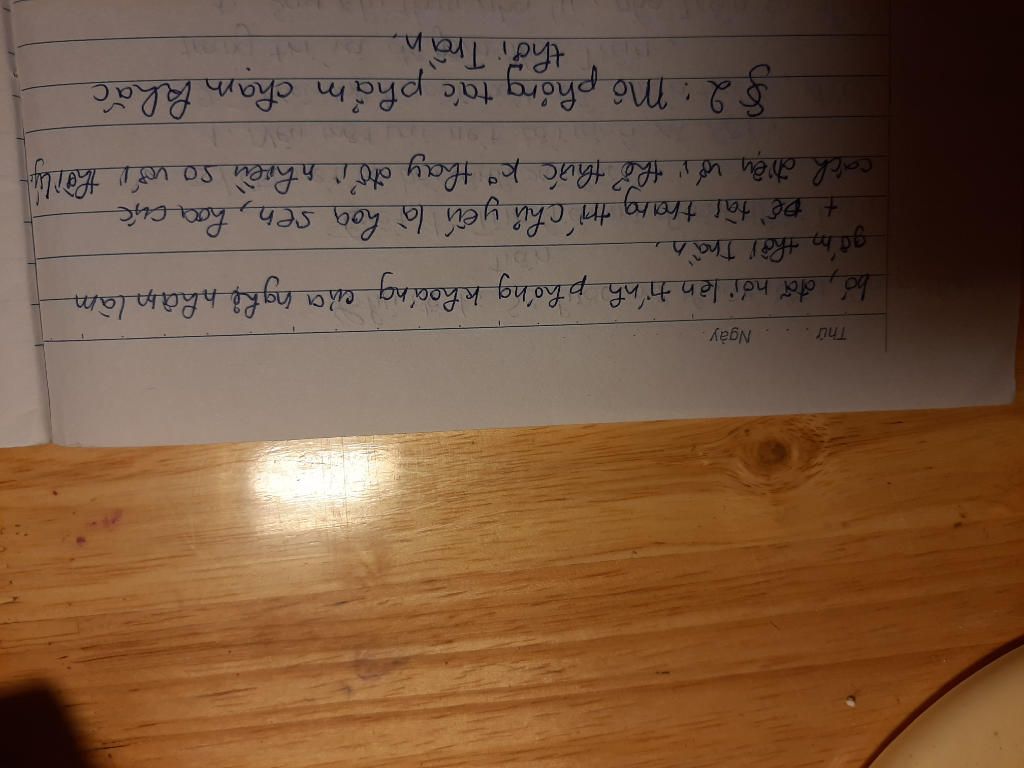 Thứ Ngày
bỏ, đã nói lên tính phóng khoáng của nghệ nhân làm
gốm thời Trần.
+ Đề tài trang trí chủ yếu là hoa sen, hoa cúc
cách điệu với thể thức k° thay đổi nhiều so với thời Lý
§ 2: Mô phỏng tác phẩm chạm khắc
thời Trần.